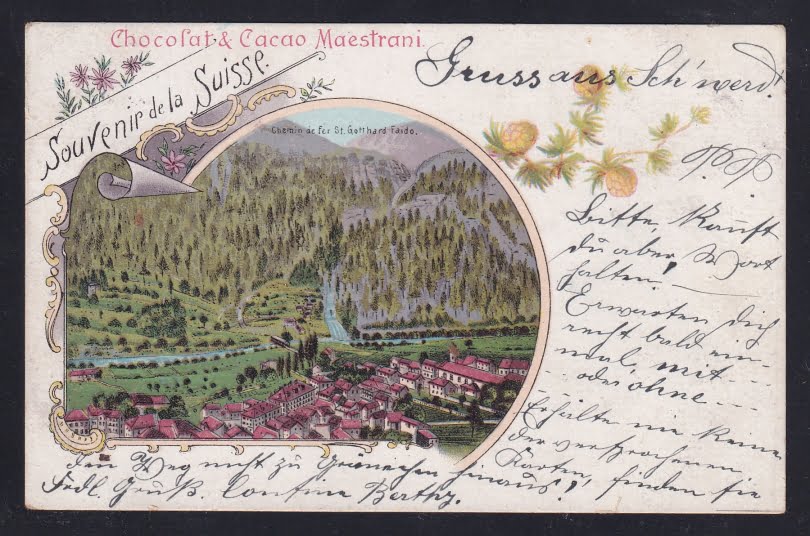 Chocolat & Cacao Maestrani.
Souvenir de la Suisse.
Chemin de Fer St. Gotthard Faido.
Gruss aus
Bitte, kannst
du aber Wort
halten.
Erwarten dich
recht bald ein-
mal, mit --
- oder ohne ---
Erhalte nie keine
der versprochenen
Karten, finden sie
den Weg nicht zu hinaus!
Frdl. Gruß. Cousine Berthy.